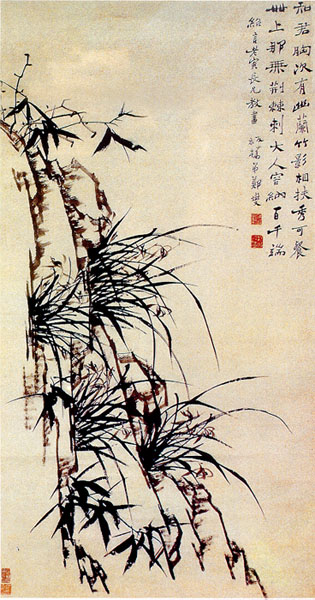 知君胸次有幽蘭竹影相扶秀可餐
世上那無荊棘刺大人容納百千端
言老寅長兄教畫
板橋弟鄭燮